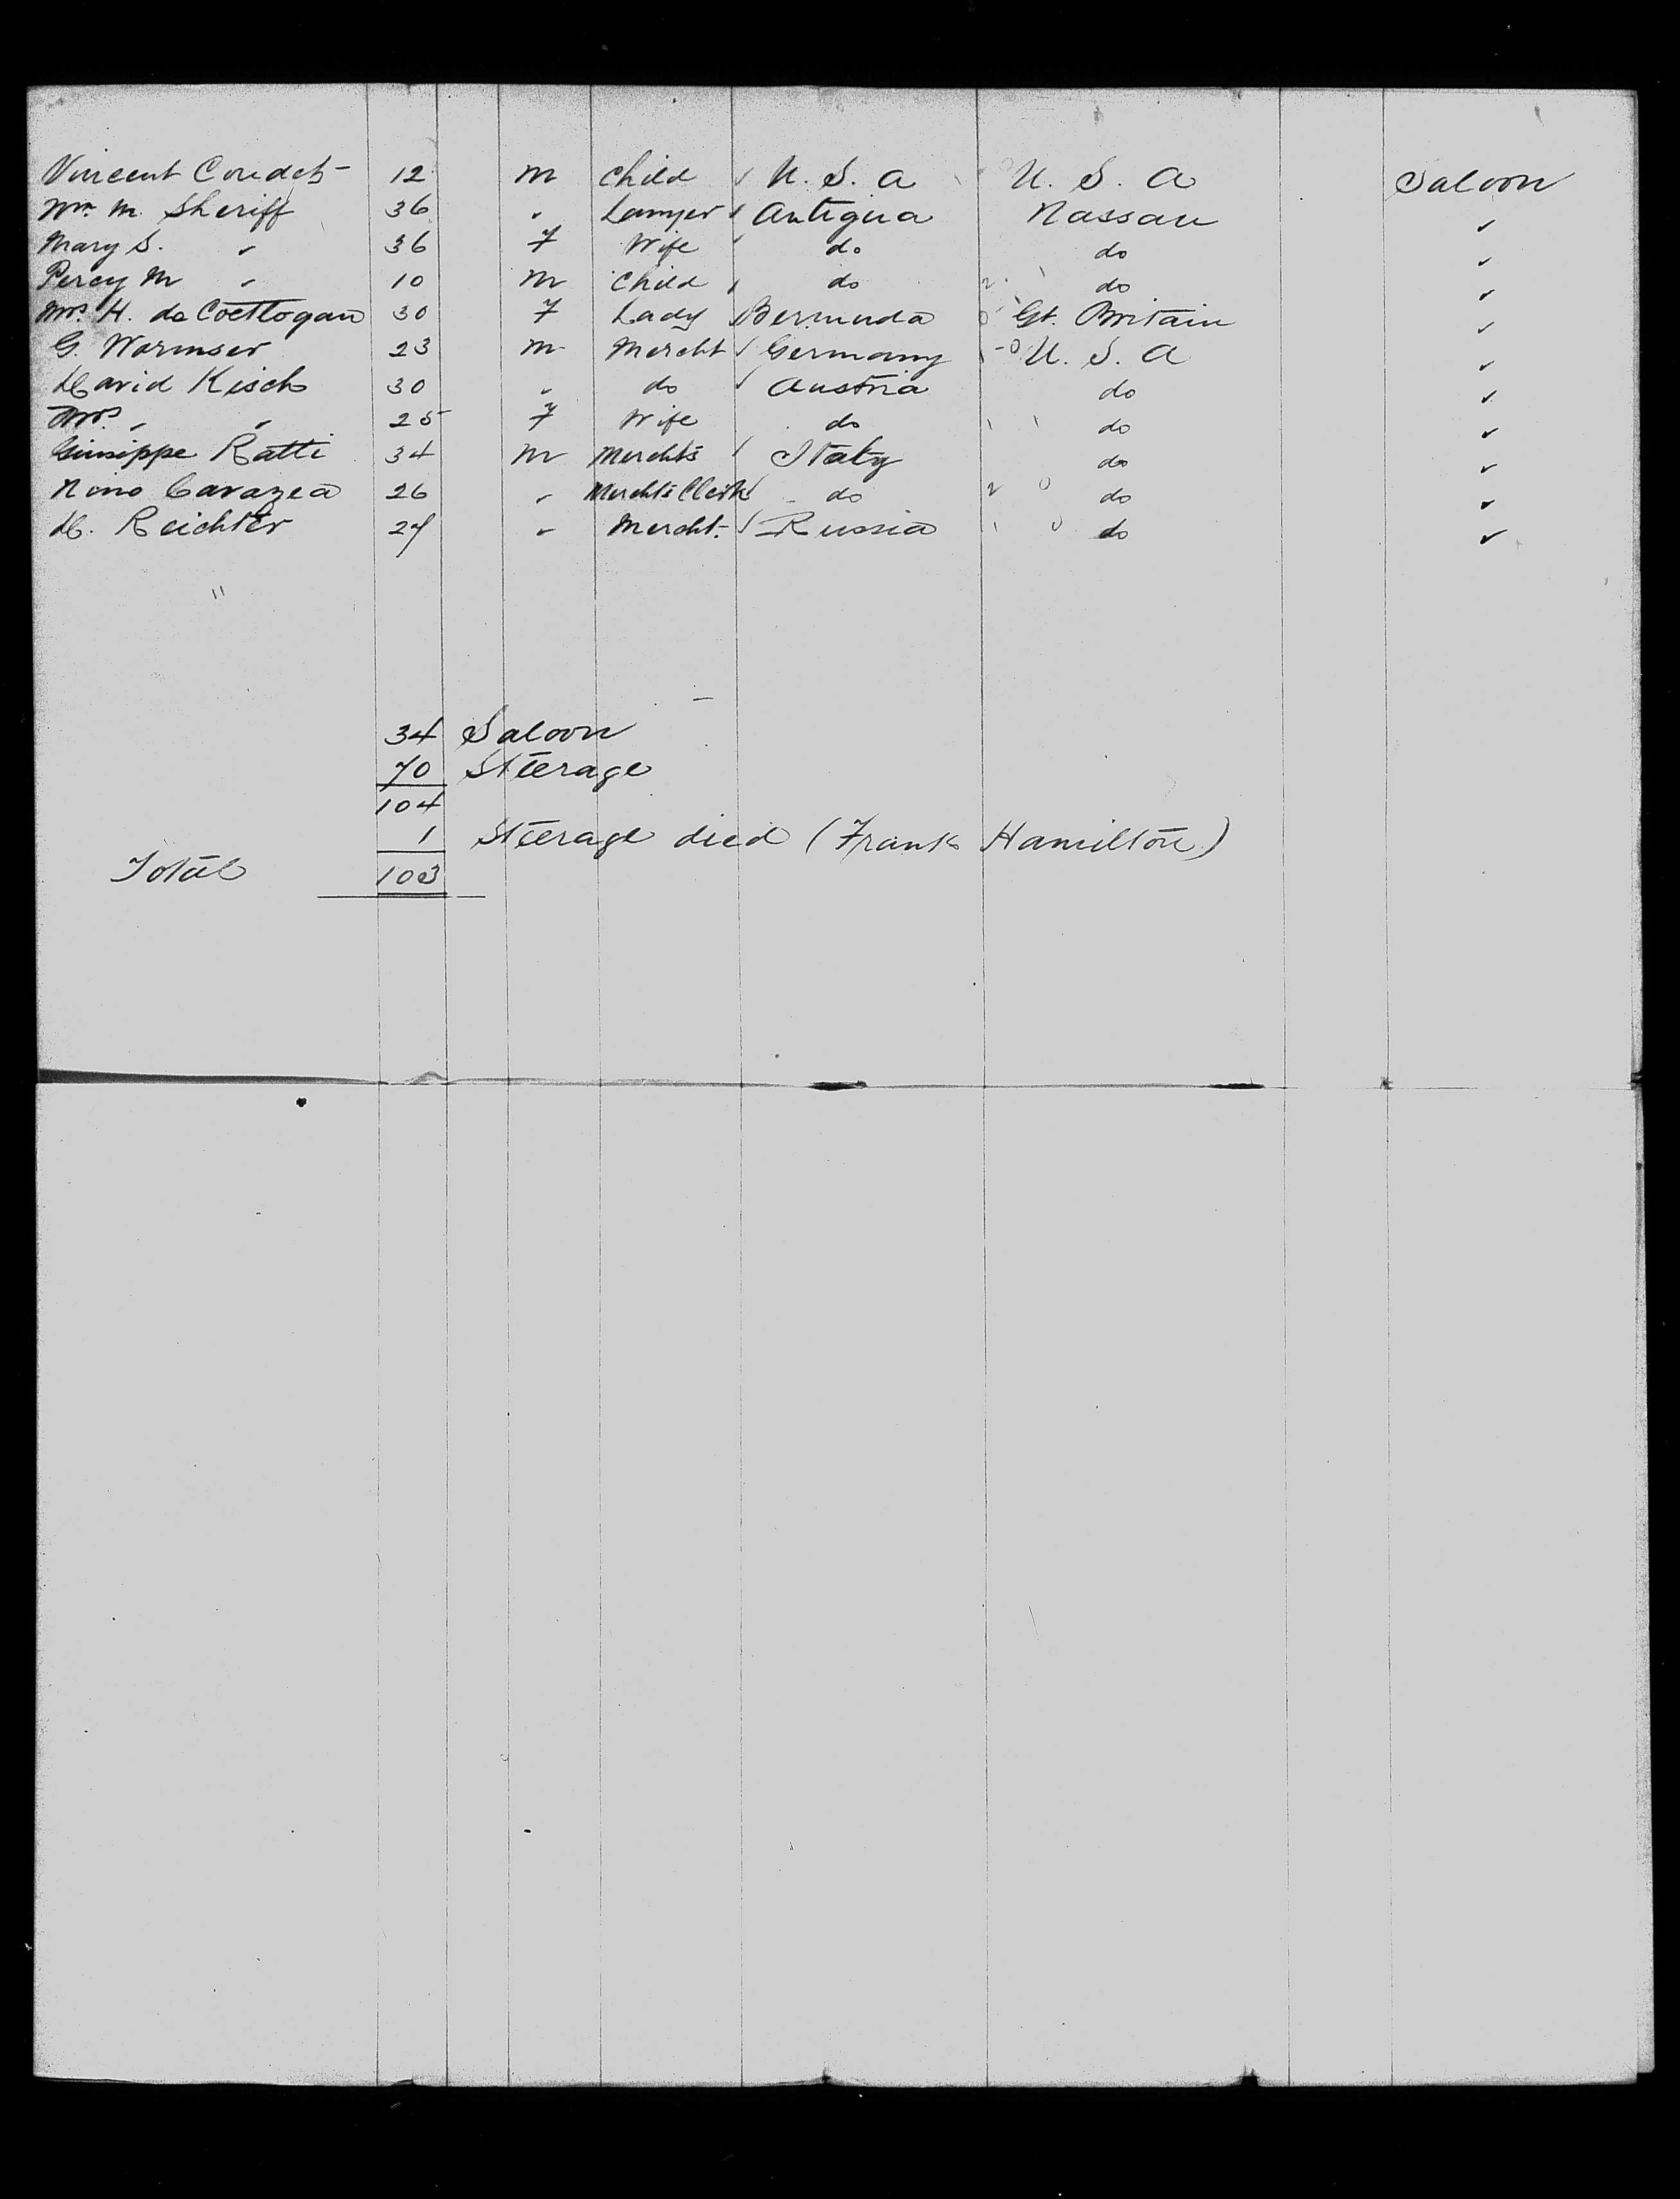 Vincent Coudet 12 m Child U. S. A U. S. A Saloon
Wm. M. Sheriff 36 " Lawyer Antigua Nassau "
Mary S. " 36 F Wife do do "
Percy M " 10 m Child do do "
Mrs. H. de Coettogan 30 F Lady Bermuda Gt. Britain "
G. Wormser 23 m Mercht Germany U. S. A "
David Kisch 30 " do Austria do "
Mrs " " 25 F Wife do do "
Giuseppe Ratti 34 m Merchts Italy do "
Nino 26 " Merchts Clerk do do "
D. Reichter 27 " Mercht. Russia do "
34 Saloon
70 Steerage
104
1 Steerage died (Frank Hamilton)
Total 103